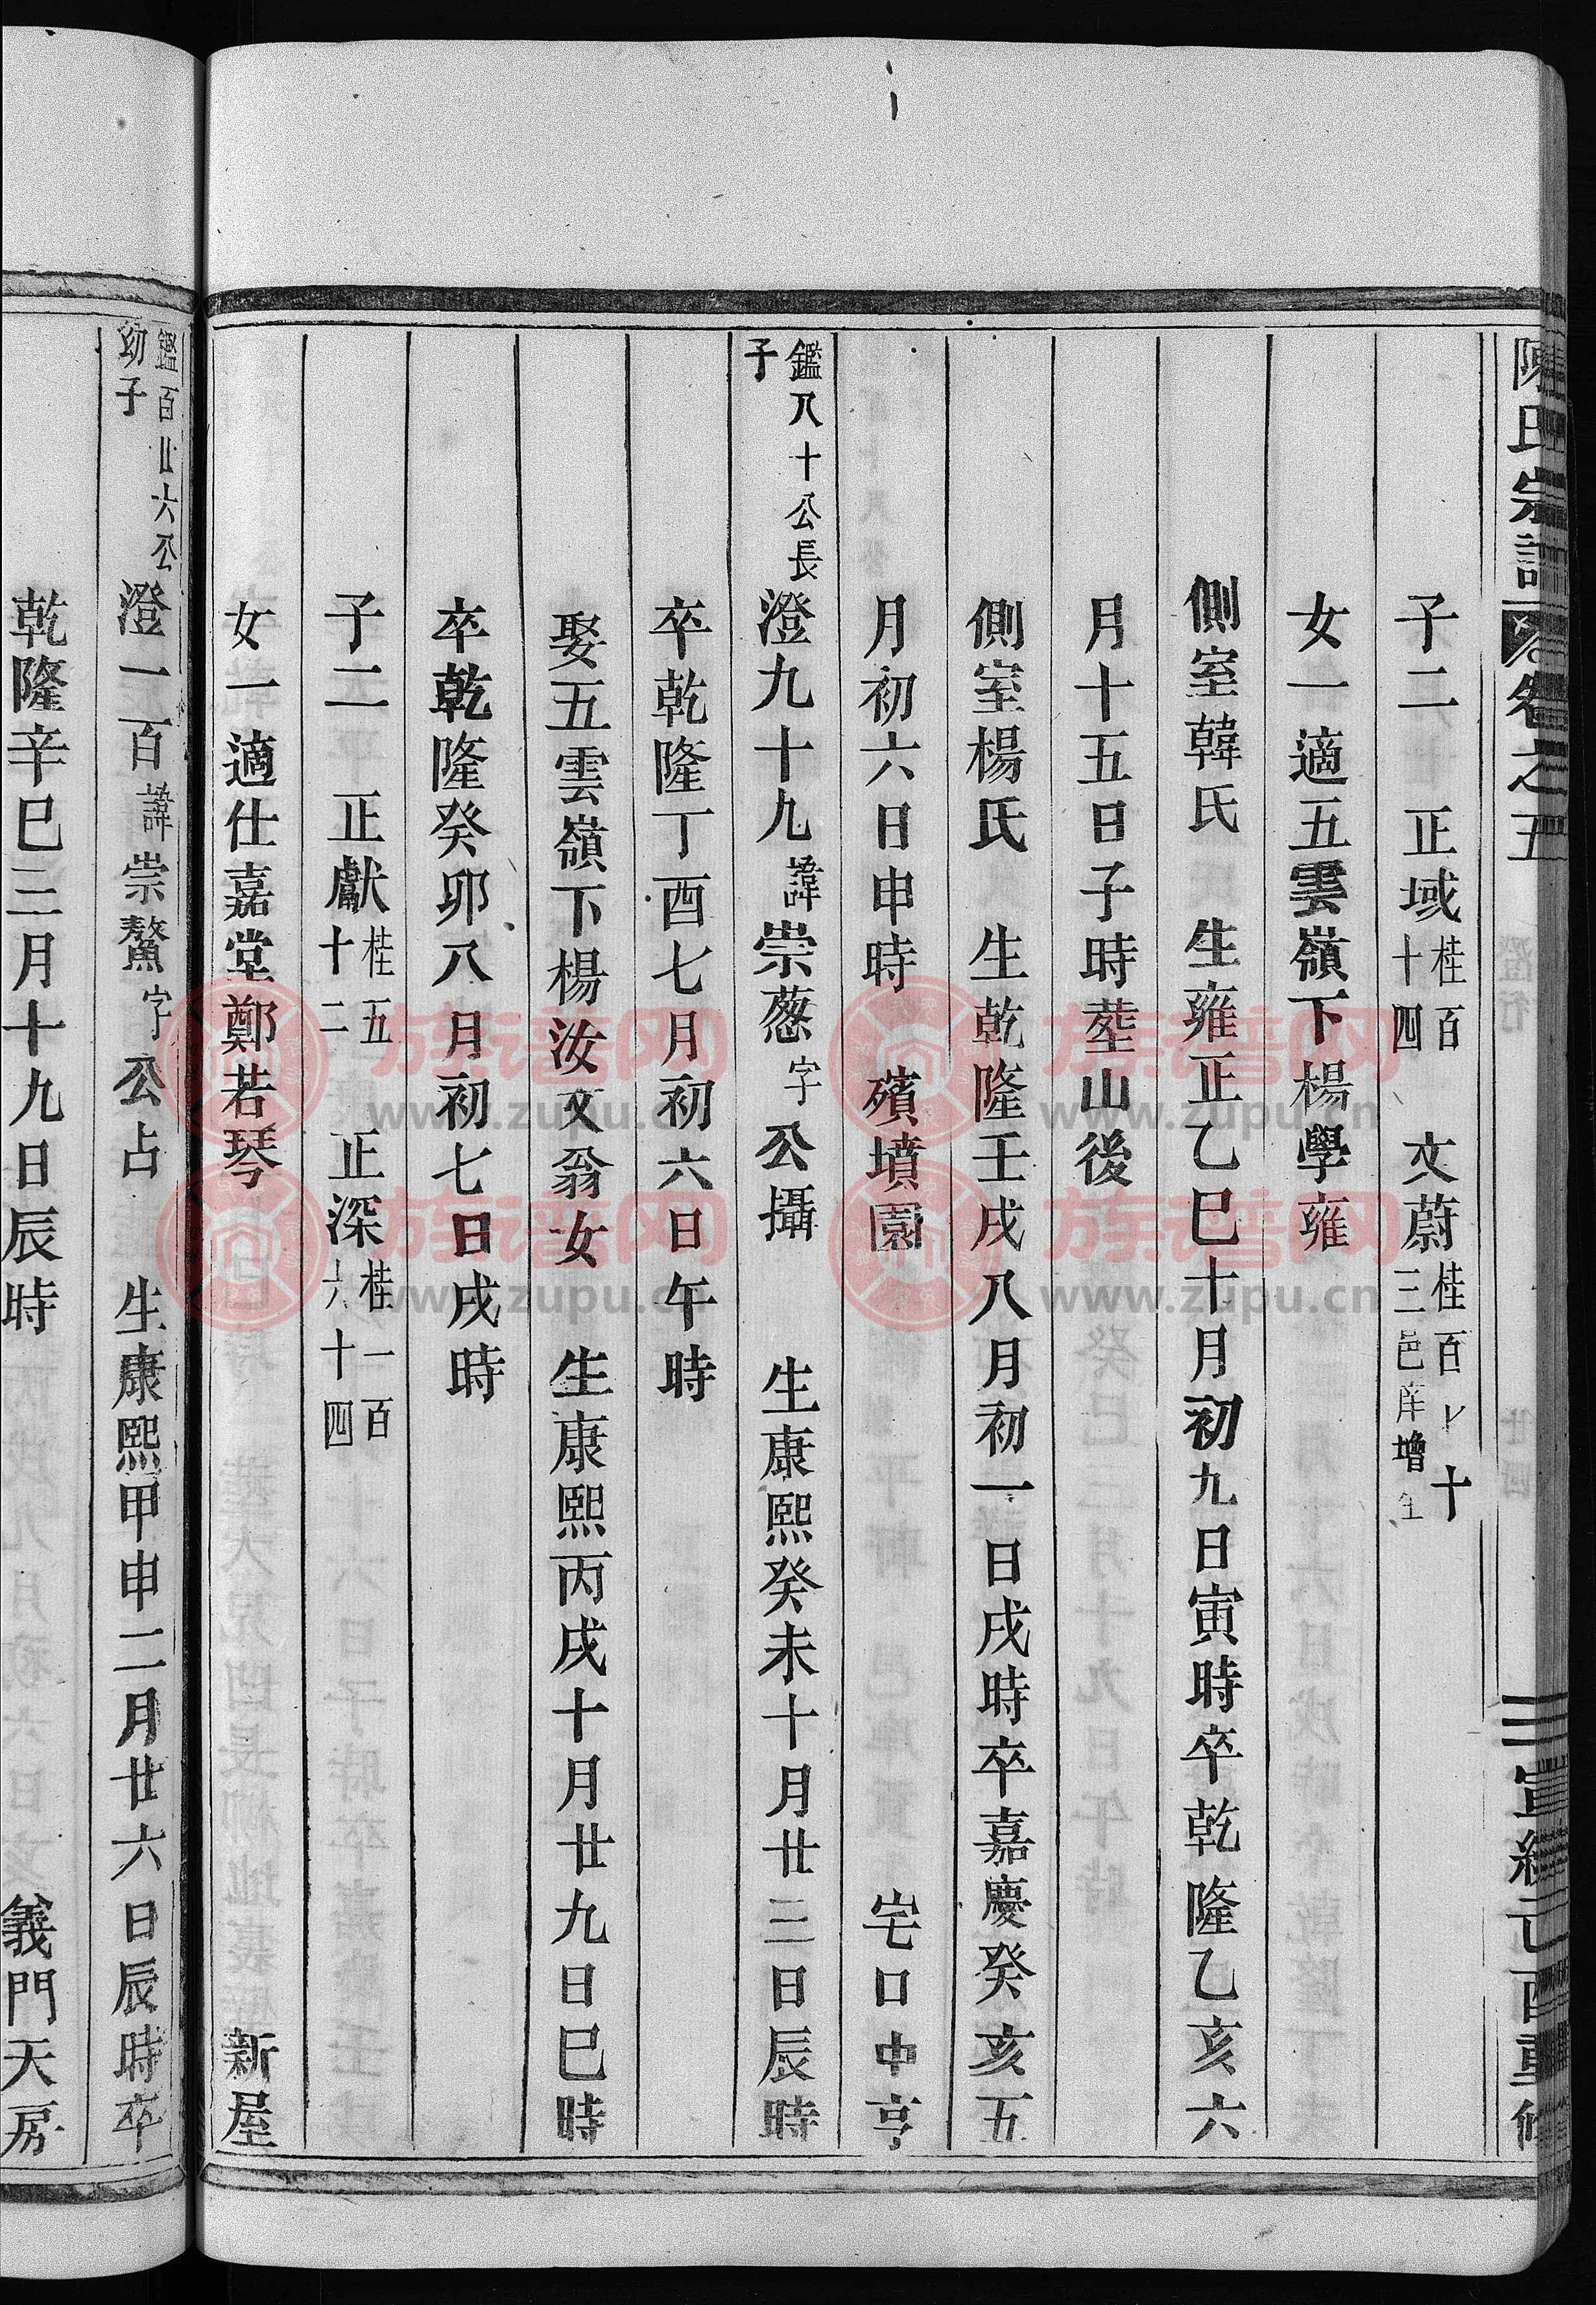 陳氏宗譜 卷之五 宣統己酉重修
子二 正域 桂百十四 文蔚 桂百十三邑庠增生
女一適五雲嶺下楊學雍
側室韓氏 生雍正乙巳十月初九日寅時卒乾隆乙亥六
月十五日子時塟山後
側室楊氏 生乾隆壬戌八月初一日戌時卒嘉慶癸亥五
月初六日申時 殯墳園 宅口中亨
鑑八十公長子 澄九十九諱崇蔥字公攝 生康熙癸未十月廿三日辰時
卒乾隆丁酉七月初六日午時
娶五雲嶺下楊汝文翁女 生康熙丙戌十月廿九日巳時
卒乾隆癸卯八月初七日戌時
子二 正獻 桂五十二 正深 桂一百六十四
女一適仕嘉堂鄭若琴 新屋
鑑百廿六公幼子 澄一百諱崇鰲字公占 生康熙甲申二月廿六日辰時卒
乾隆辛巳三月十九日辰時 義門天房
族谱网
www.zupu.cn
族谱网
www.zupu.cn
族谱网
www.zupu.cn
族谱网
www.zupu.cn